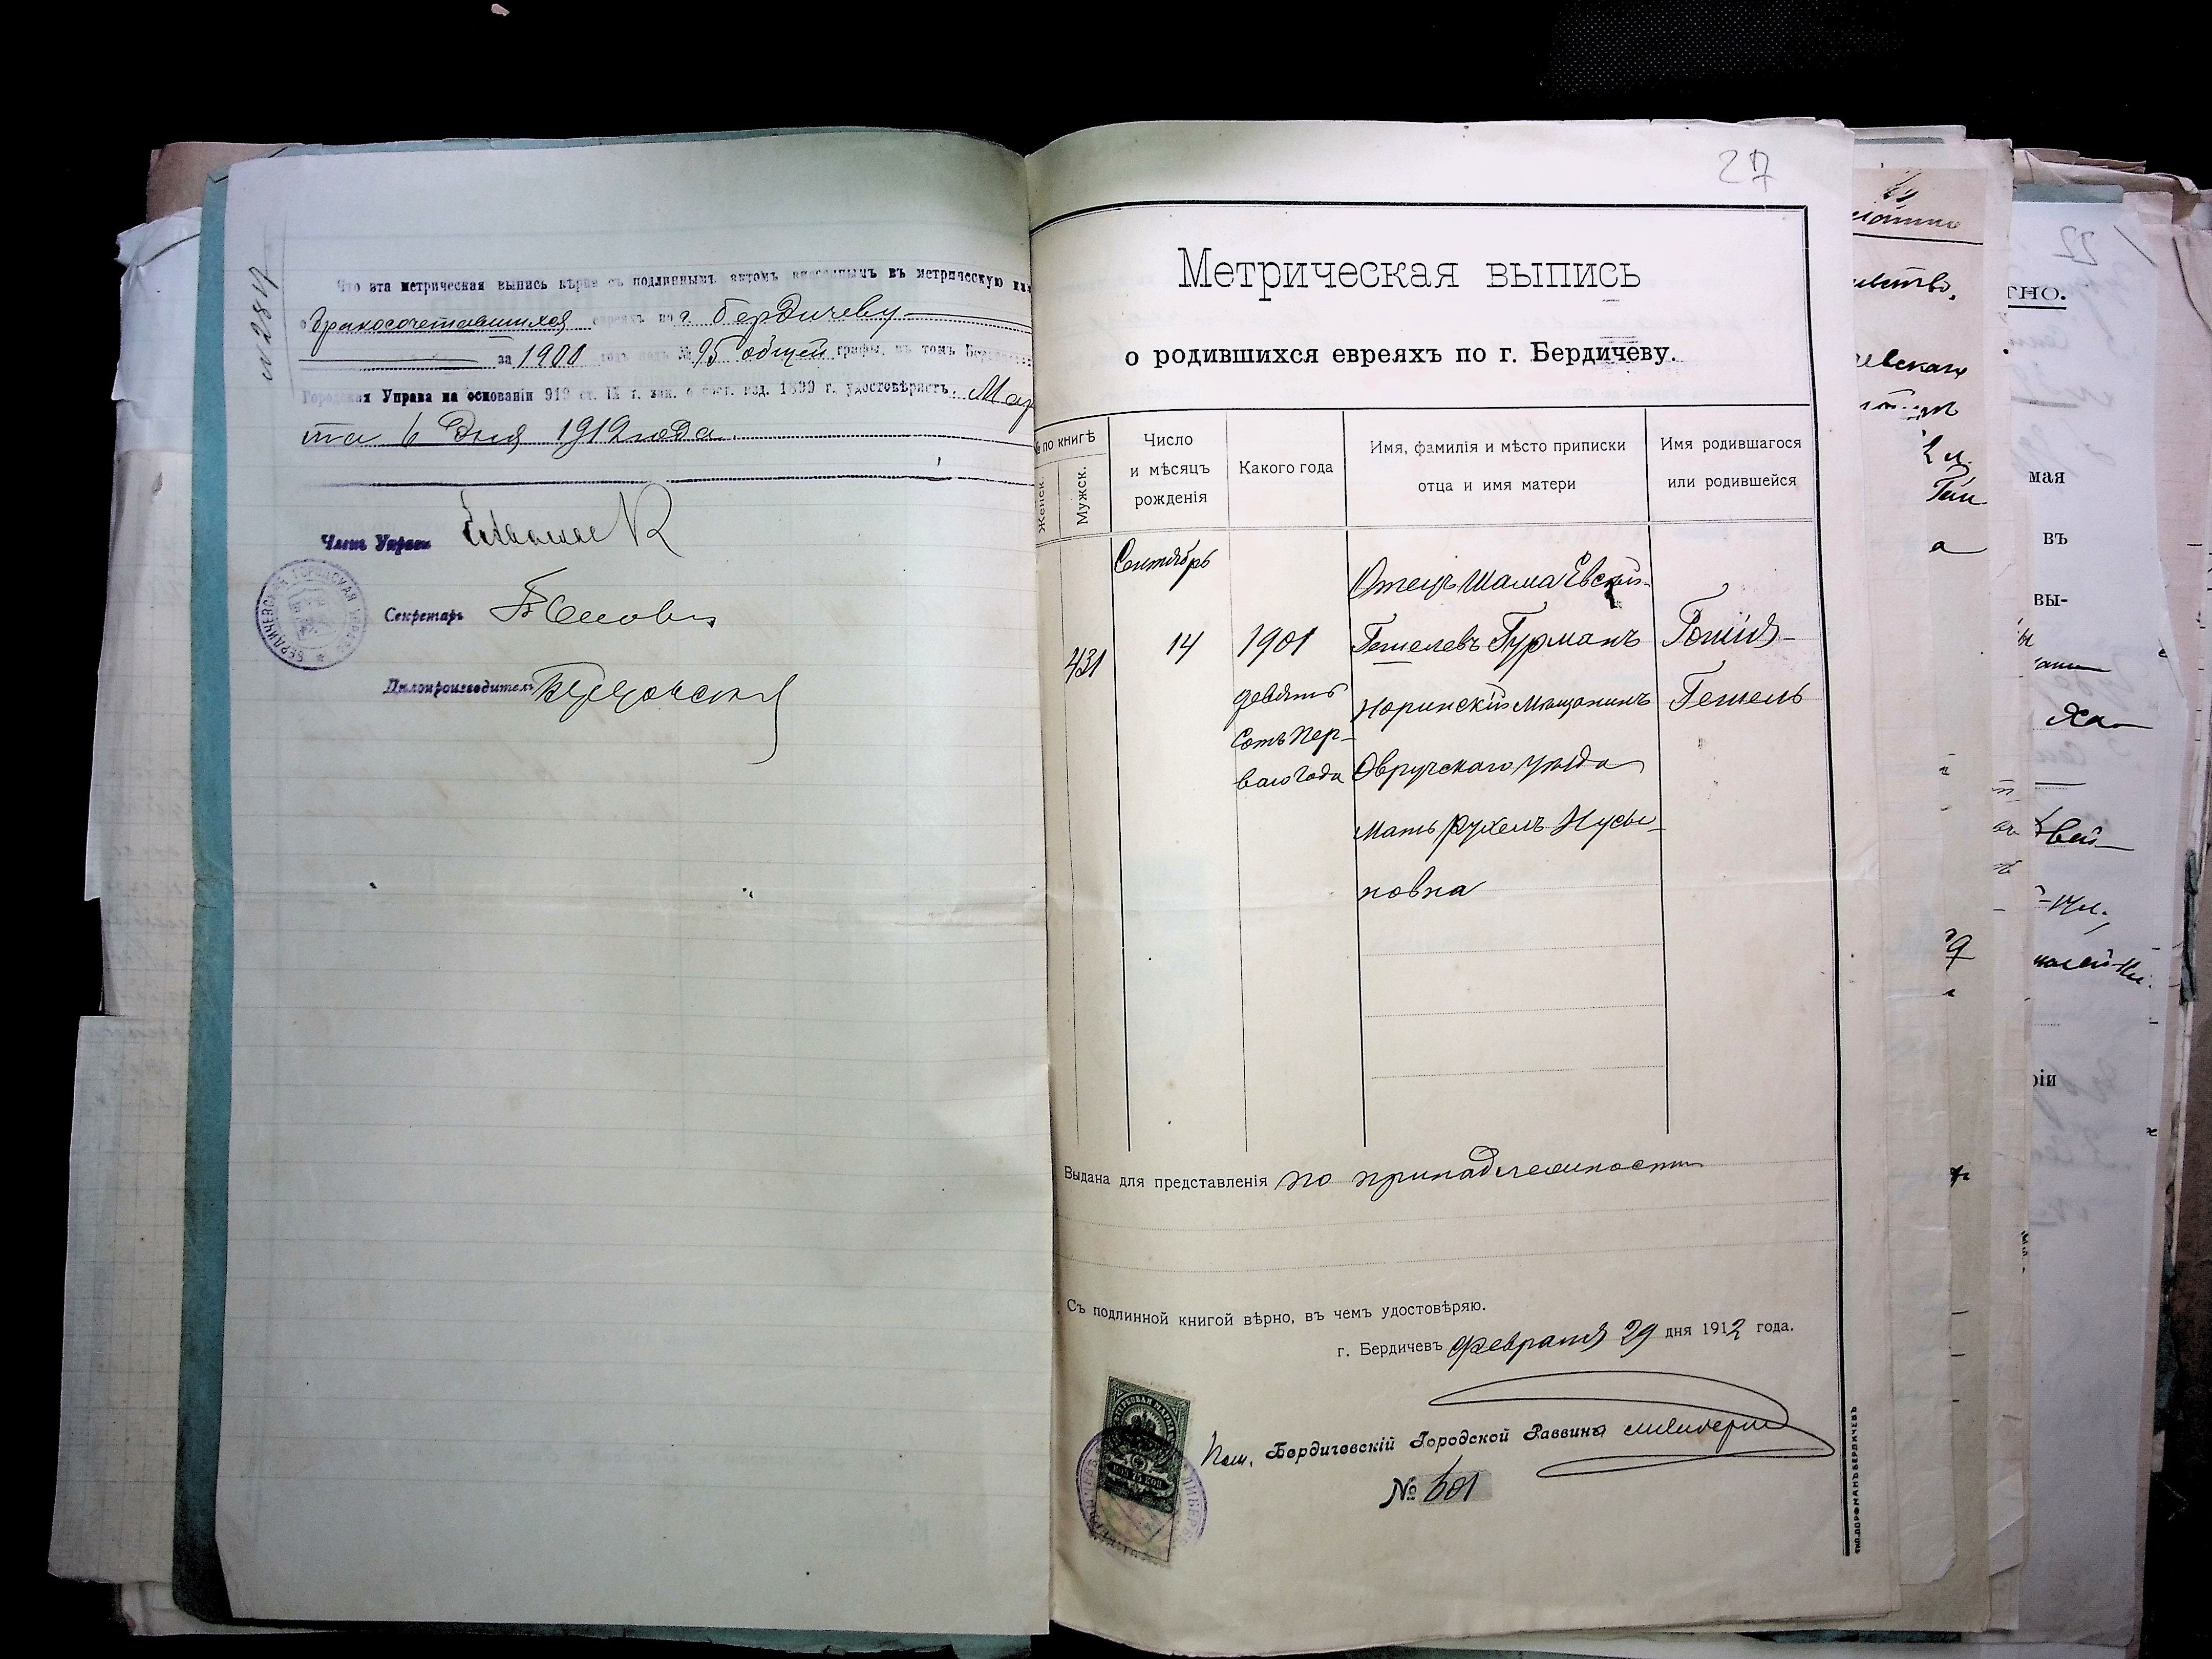 № 2847
Что эта метрическая выпись вѣрна съ подлиннымъ актомъ внесеннымъ въ метрическую
о бракосочетавшихся евреяхъ по г. Бердичеву
за 1900 годъ подъ № 95 общей графы, въ томъ
Городская Управа на основаніи 919 ст. IX т. зак. о сост. изд. 1899 г. удостовѣряетъ. Мар
та 6 дня 1912 года.
Членъ Управы
Секретарь
Дѣлопроизводитель
БЕРДИЧЕВСКАЯ ГОРОДСКАЯ УПРАВА
27
Метрическая выпись
о родившихся евреяхъ по г. Бердичеву.
№ по книгѣ
Женск.
Мужск.
Число и мѣсяцъ рожденія
Какого года
Имя, фамилія и мѣсто приписки отца и имя матери
Имя родившагося или родившейся
Сентябрь
14
431
1901
девять
сотъ пер-
ваго года
Отецъ Шама Евсей-
Гешелевъ Гурманъ
Норинскій мѣщанинъ
Овручскаго уѣзда
Мать Рухель Нусы-
новна
Гешель
Выдана для представленія по принадлежности
Съ подлинной книгой вѣрно, въ чемъ удостовѣряю.
г. Бердичевъ Февраля 29 дня 1912 года.
Пом. Бердичевскій Городской Раввина
№ 601
ГЕРБОВАЯ МАРКА
75 КОП
ТИП. ДОРФМАНЪ БЕРДИЧЕВЪ
22
ТНО.
мая
въ
вы-
Ха-
вей-